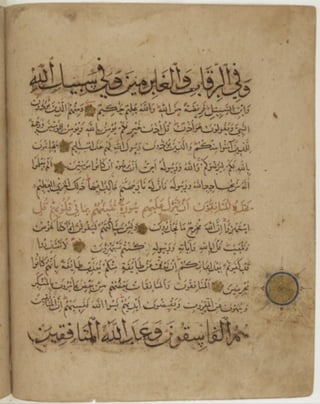 وفي الرقاب والغارمين وفي سبيل الله
وابن السبيل فريضة من الله والله عليم حكيم ومنهم الذين يؤذون
النبي ويقولون هو أذن قل أذن خير لكم يؤمن بالله ويؤمن للمؤمنين ورحمة
للذين آمنوا منكم والذين يؤذون رسول الله لهم عذاب أليم يحلفون
بالله لكم ليرضوكم والله ورسوله أحق أن يرضوه إن كانوا مؤمنين ألم يعلموا
أنه من يحادد الله ورسوله فأن له نار جهنم خالدا فيها ذلك الخزي العظيم
يحذر المنافقون أن تنزل عليهم سورة تنبئهم بما في قلوبهم قل
استهزءوا إن الله مخرج ما تحذرون ولئن سألتهم ليقولن إنما كنا نخوض
ونلعب قل أبالله وآياته ورسوله كنتم تستهزءون لا تعتذروا
قد كفرتم بعد إيمانكم إن نعف عن طائفة منكم نعذب طائفة بأنهم كانوا
مجرمين المنافقون والمنافقات بعضهم من بعض يأمرون بالمنكر
وينهون عن المعروف ويقبضون أيديهم نسوا الله فنسيهم إن المنافقين
هم الفاسقون وعد الله المنافقين